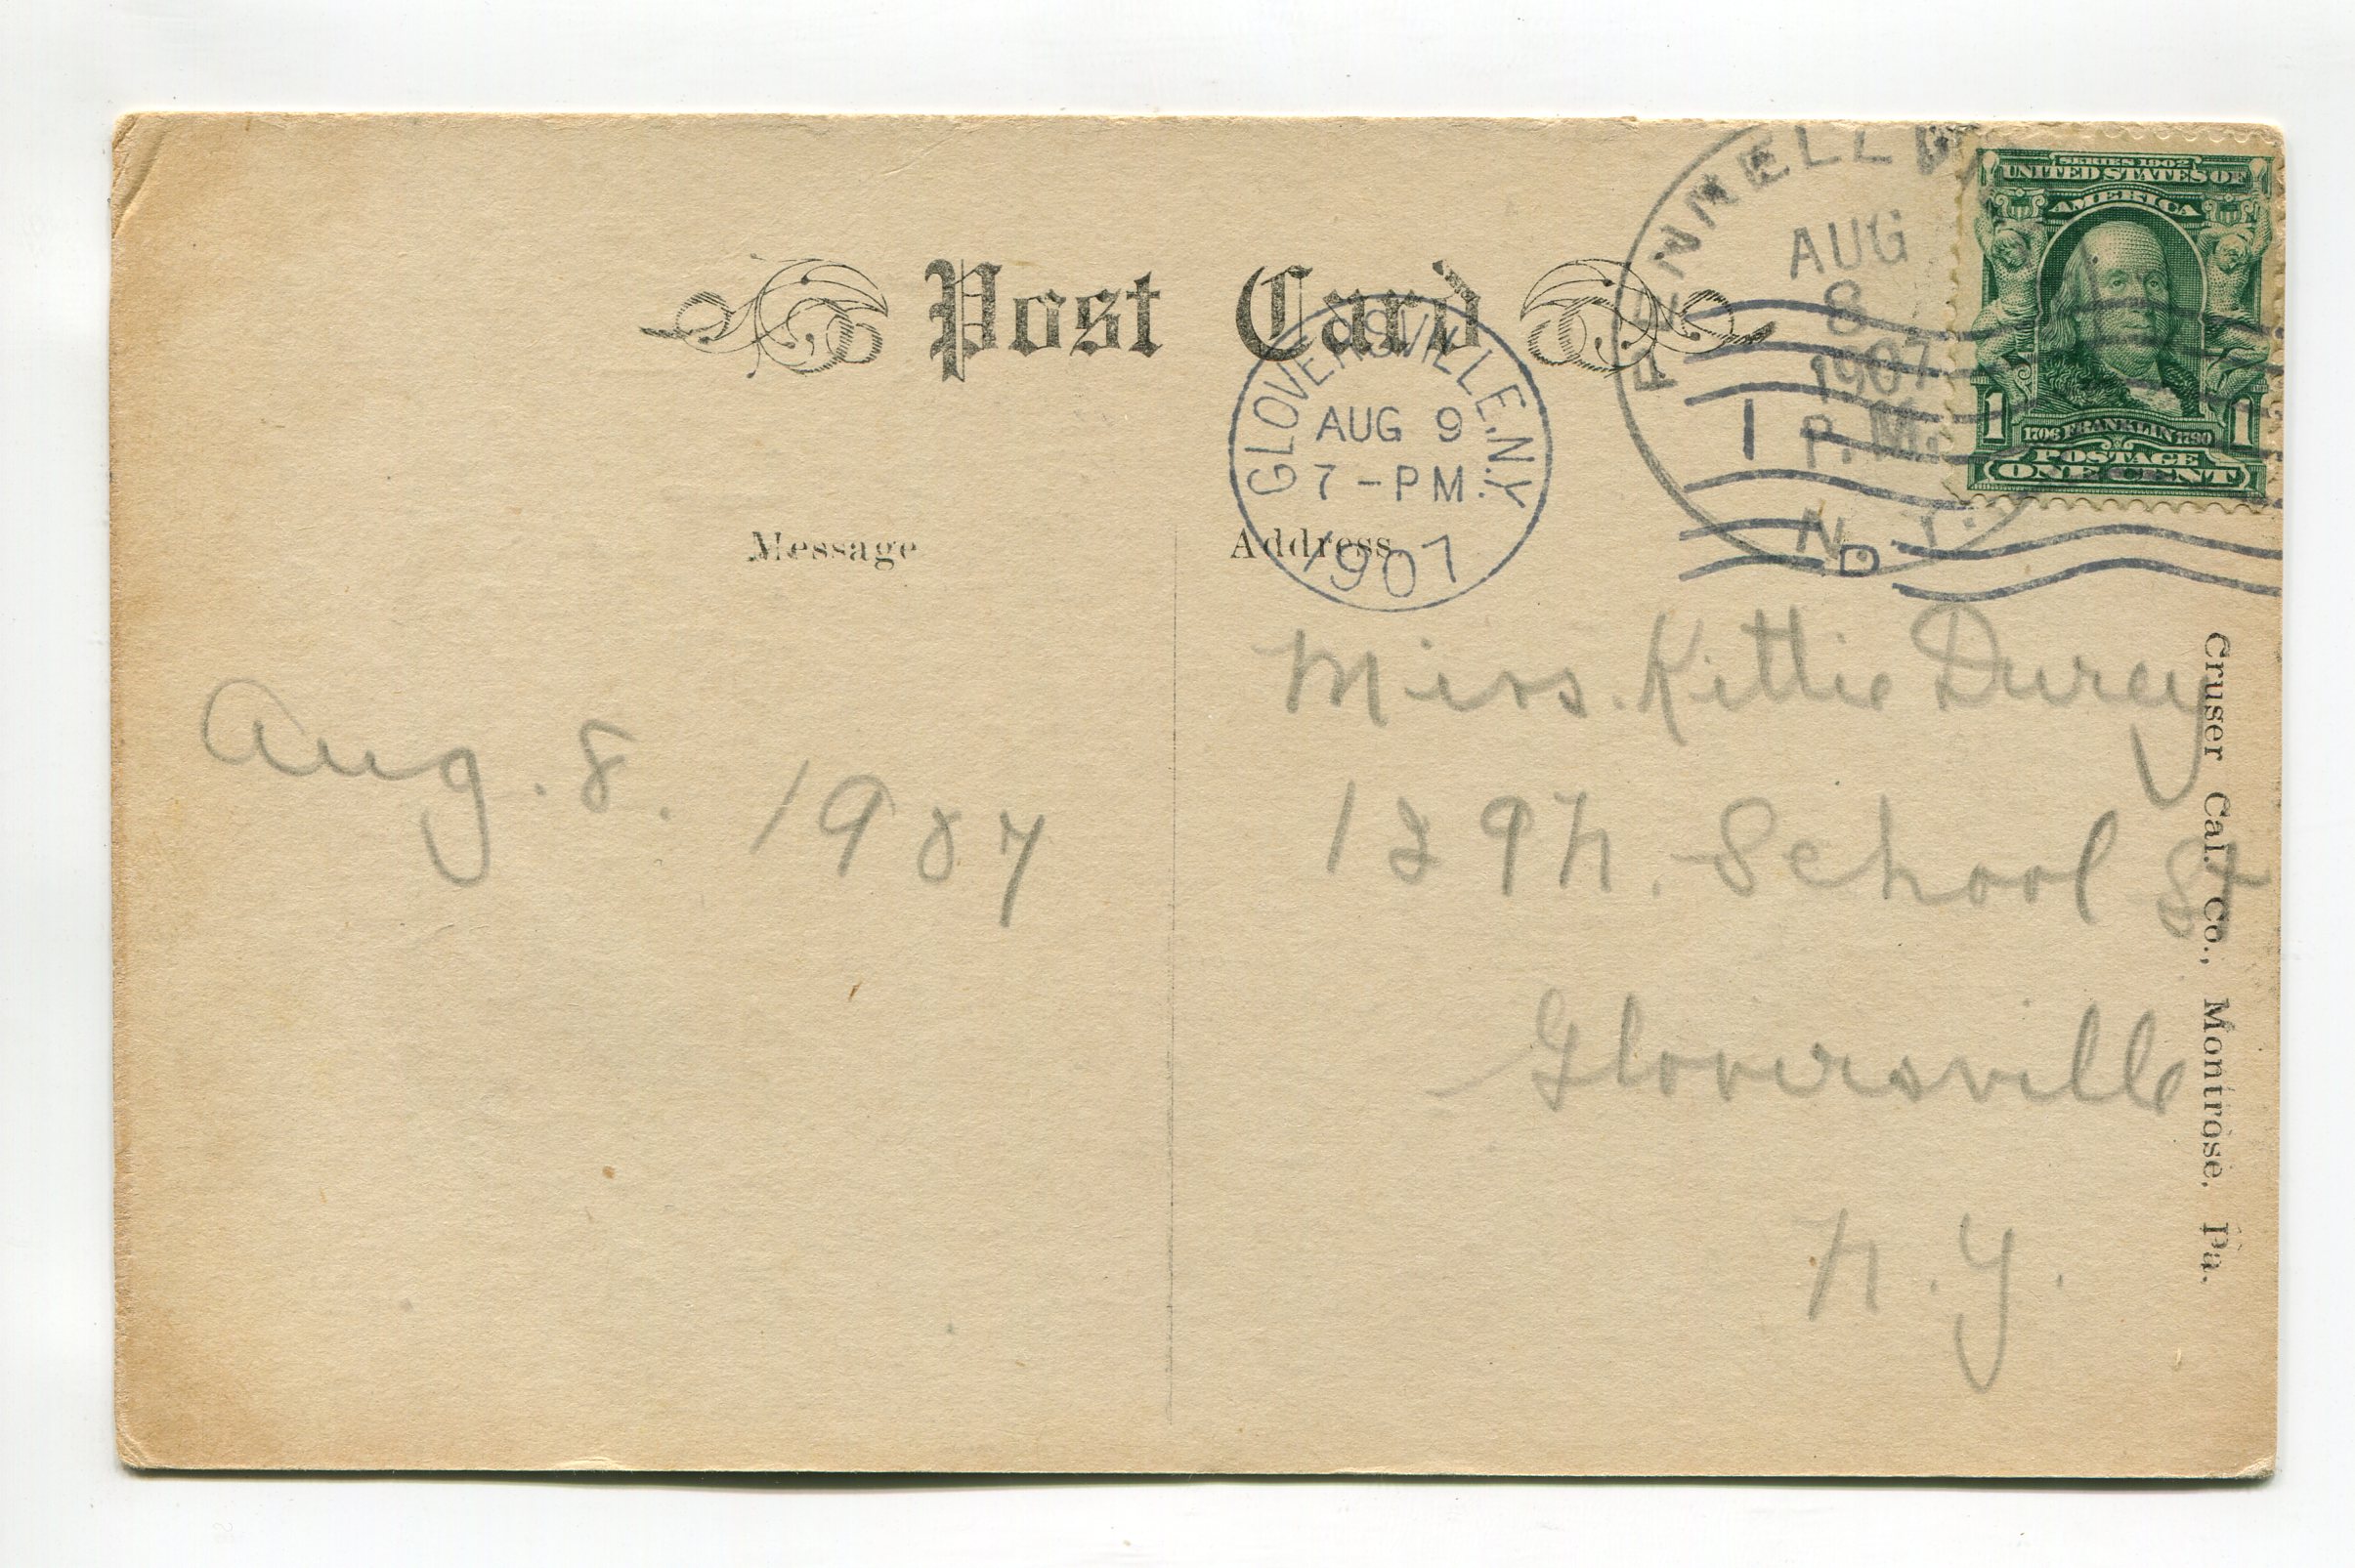 Post Card
PENNELLVI
AUG
8
1907
1 P.M.
N.Y.
SERIES 1902
UNITED STATES OF
AMERICA
1 1
1706 FRANKLIN 1790
POSTAGE
ONE CENT
GLOVERSVILLE, N.Y.
AUG 9
7-PM
1907
D
Message
Address
Aug. 8. 1907
Miss. Kittie Durey
129 N. School St
Gloversville
N.Y.
Cruser Cal. Co., Montrose, Pa.